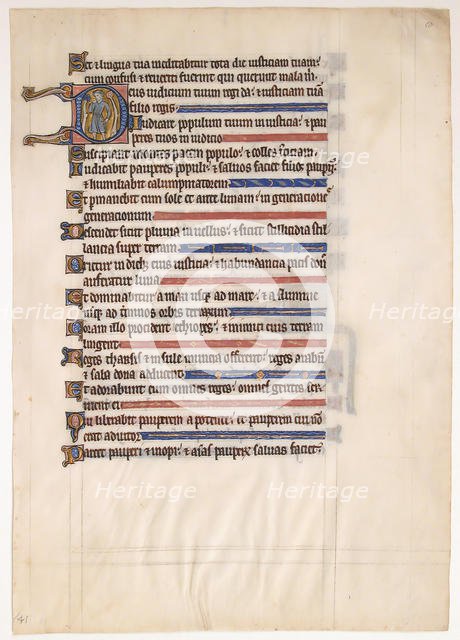 Set & lingua tua meditabitur tota die iusticiam tuam:
cum confusi & reveriti fuerint qui querunt mala m.
Deus iudicium tuum regi da: & iusticiam tuā
filio regis.
Iudicare populum tuum in iusticia: & pau
peres tuos in iudicio
Suscipiant montes pacem populo: & colles iusticiam.
Iudicabit pauperes populi: & saluos faciet filios paupeꝝ
& humiliabit calumpniatorem
Et permanebit cum sole et ante lunam: in generatione &
generacionum
Descendet sicut pluuia in uellus: & sicut stillicidia stil
lancia super terram
Orietur in dieb; eius iusticia: & habundancia pacis don
auferatur luna
Et dominabitur a mari usq; ad mare: & a flumine
usq; ad terminos orbis terrarum
Coram illo procident ethiopes: & inimici eius terram
lingent
Reges tharsis & insule munera offerent: reges arabū
& saba dona adducent
Et adorabunt eum omnes reges: omnes gentes ser
uient ei
Quia liberabit pauperem a potente: & pauperem cui nō
erat adiutor
Parcet pauperi & inopi: & aīas pauperꝝ saluas faciet:
Heritage Heritage
Heritage Heritage
Heritage Heritage
41